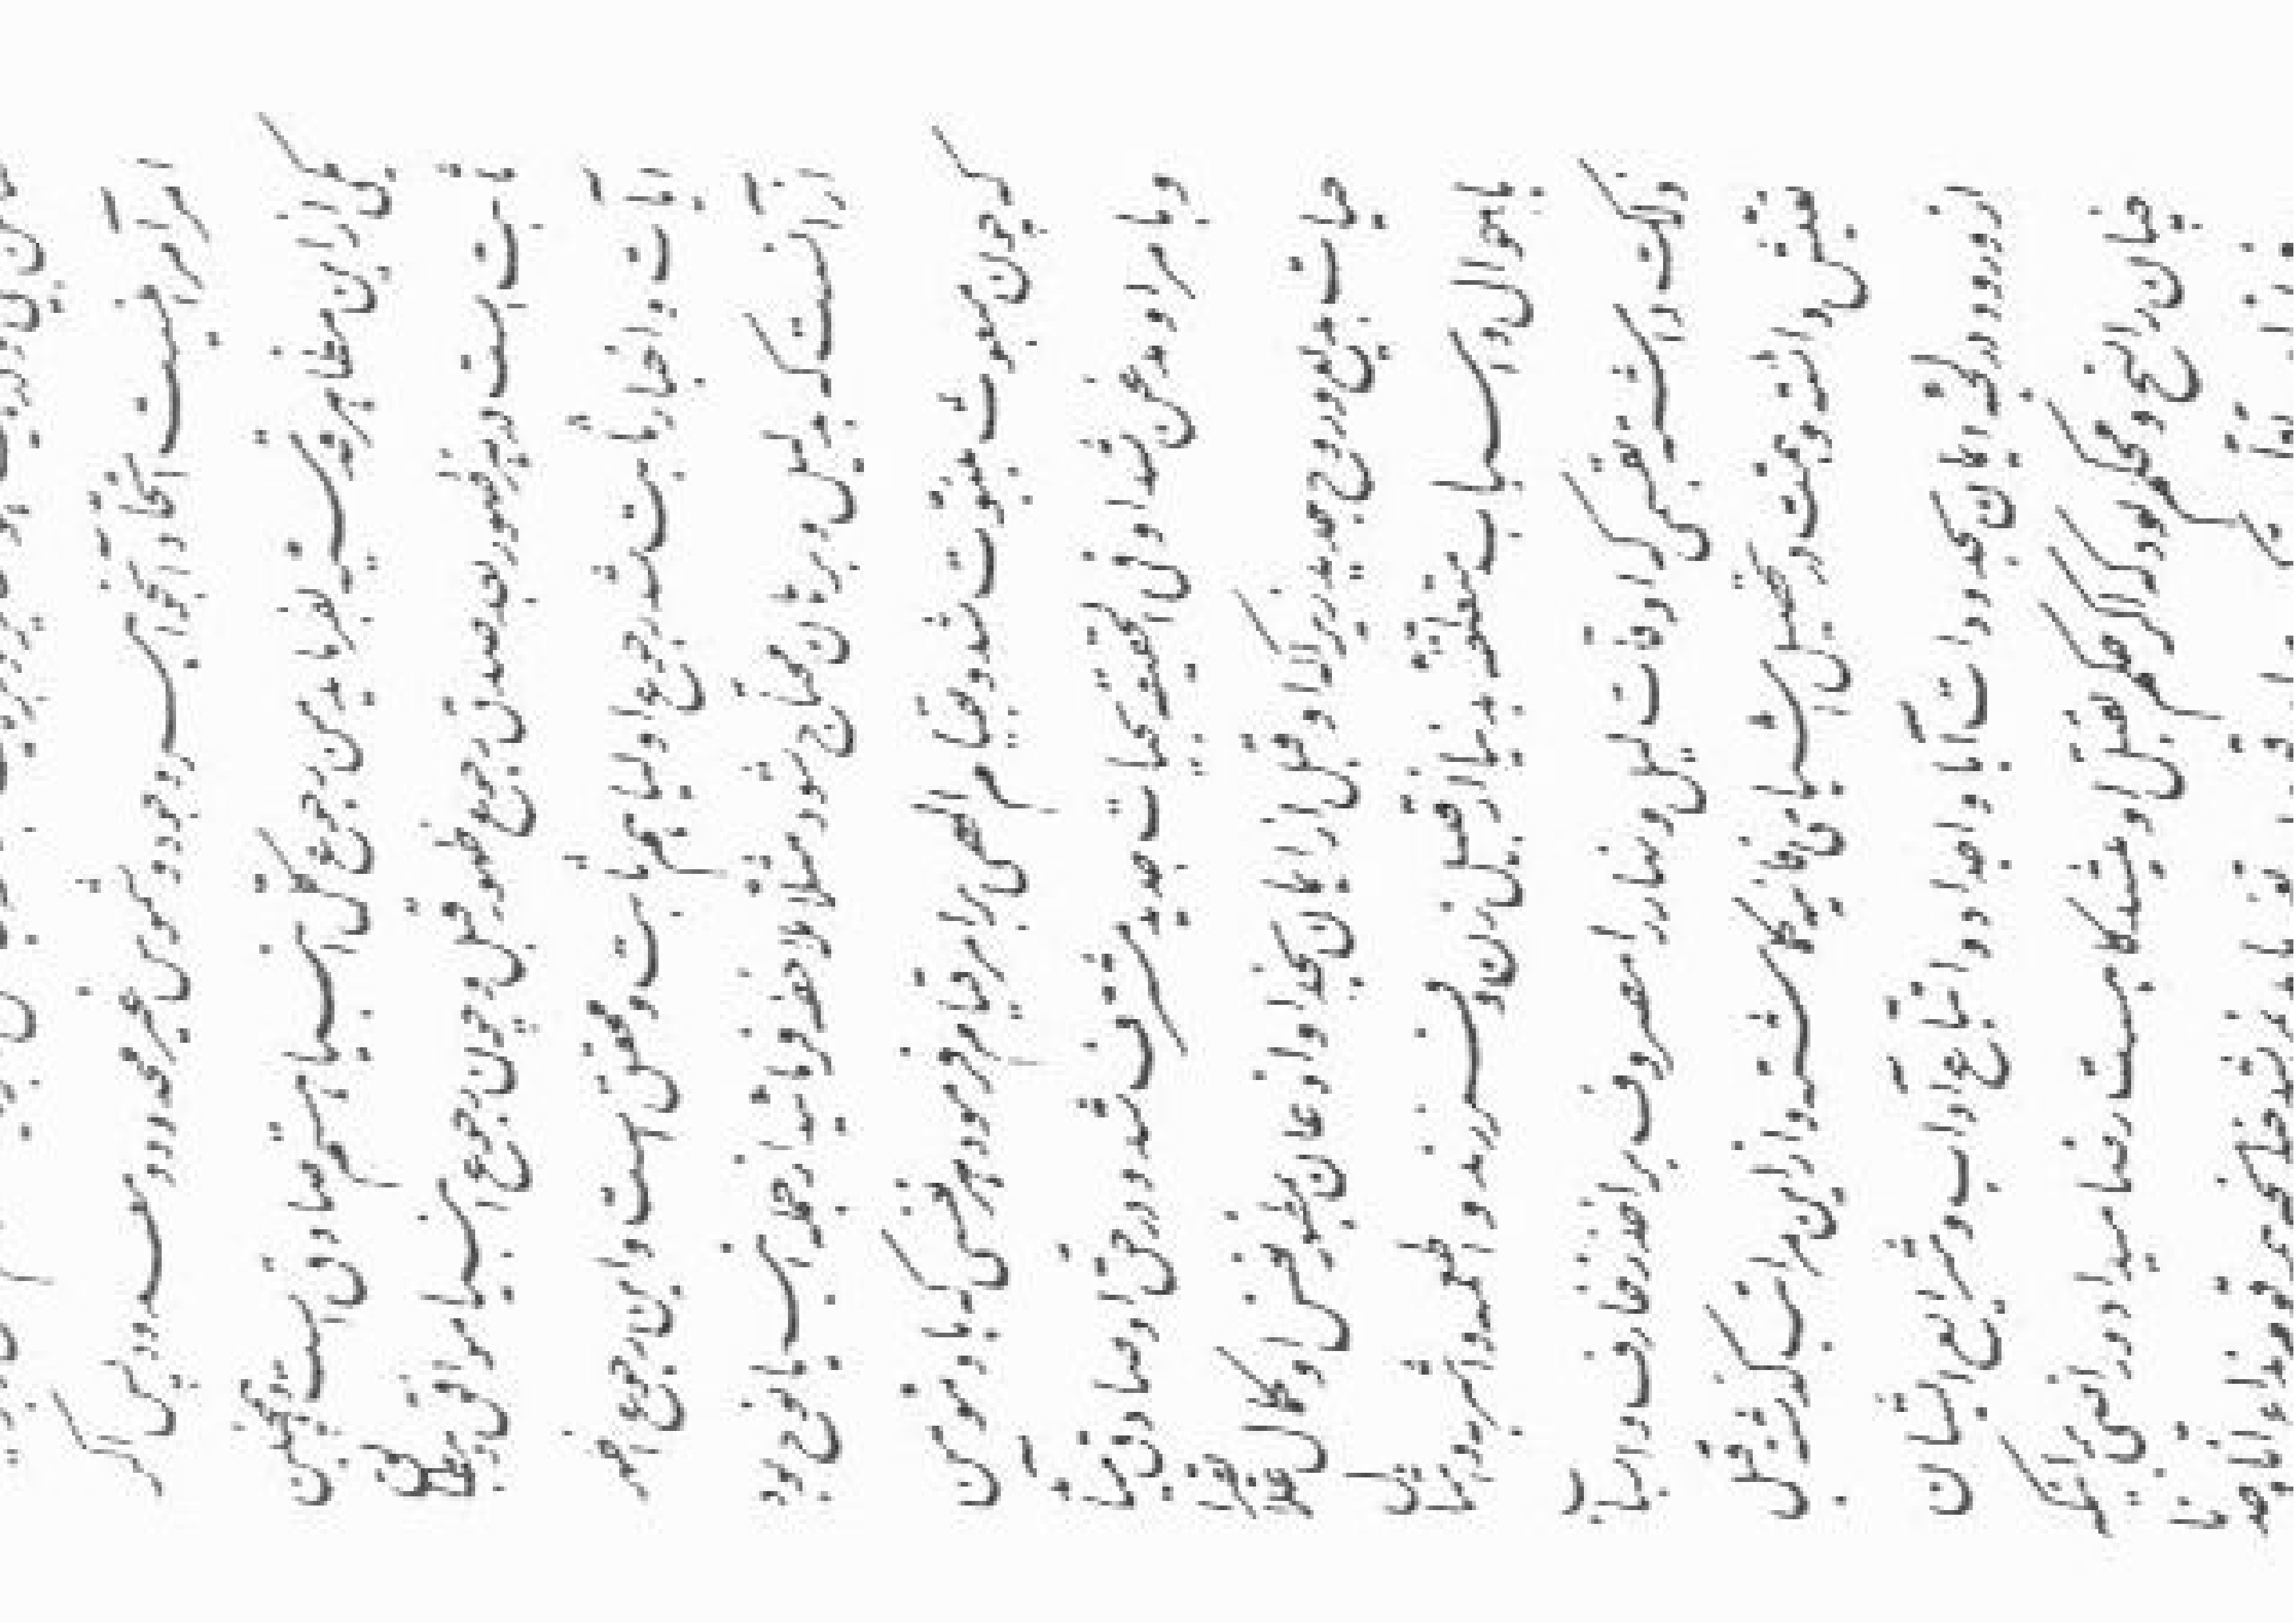 امر آمر اینست اتحاد آنجواهر وجود و شموس غیر محدود و معدود پس اگر
یکی از این مظاهر قدسیه بفرماید من رجوع کل انبیا هستم صادق است و همچنین
ثابت است در هر ظهور بعد صدق رجوع ظهور قبل و چون رجوع انبیا موافق و مطابق
آیات و اخبار ثابت شد رجوع اولیا هم ثابت و محقق است و این رجوع اظهر
از آنست که بدلیل و برهان محتاج شود مثلا ملاحظه فرمائید از جمله انبیا نوح بود
که چون مبعوث بنبوت شد و بقیام الهی بر امر قیام فرمود هر نفسی که باو مؤمن
و بامر او مذعن شد او فی الحقیقه بحیات جدیده مشرف شد و در حق او صادق میآمد
حیات بدیع و روح جدید زیرا که او قبل از ایمان بخدا و اذعان بمظهر نفس او کمال علاقه را
باموال و اسباب متعلقه بدنیا از قبیل زن و فرزند و اطعمه و اشربه و امثال
ذلک داشته بقسمی که اوقات لیل و نهار را مصروف بر اخذ زخارف و اسباب
تعیش داشته و همت در تحصیل اشیای فانیه گماشته و از این مراتب گذشته قبل
از ورود در لجهٔ ایمان بحدودات آبا و اجداد و اتباع آداب و شرایع ایشان
چنان راسخ و محکم بوده که اگر حکم بقتل او میشد گاه هست رضا میداد و راضی نمیشد